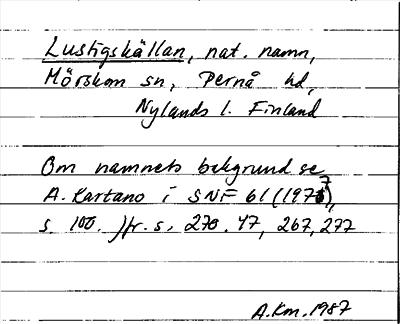 Lustigskällan, nat. namn,
Mörskom sn, Pernå hd,
Nylands l. Finland
Om namnets bakgrund se
A. Kartano i SNF 61 (1977),
s. 100. Jfr. s. 270. 47, 267, 277
A.Km. 1987